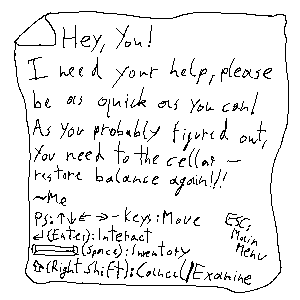 Hey, You!
I need your help, please
be as quick as you can!
As you probably figured out,
you need to the cellar –
restore balance again!!!
~Me
Ps: ↑↓← → - Keys: Move
↲(Enter): Interact
(Space): Inventory
⇧(Right Shift): Cancel/Examine
ESC:
Main
Menu